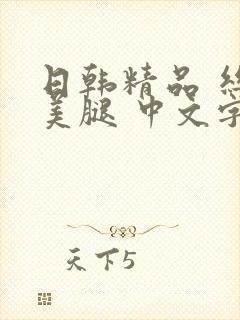 日韩精品 丝
美腿 中文字
天下5